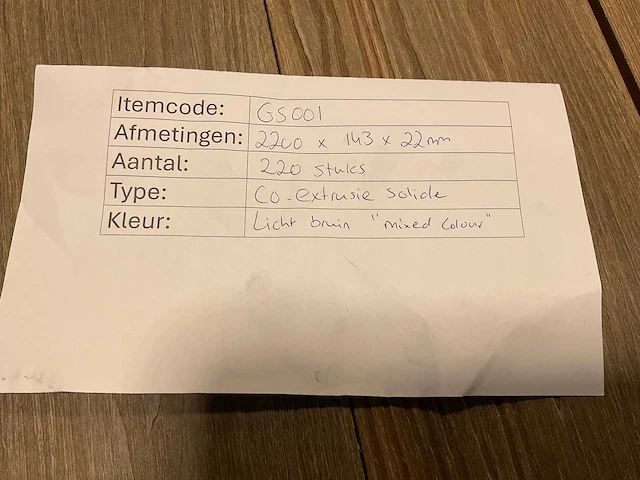 Itemcode: GS001
Afmetingen: 2200 x 143 x 22mm
Aantal: 220 stuks
Type: Co-extrusie solide
Kleur: Licht bruin "mixed colour"